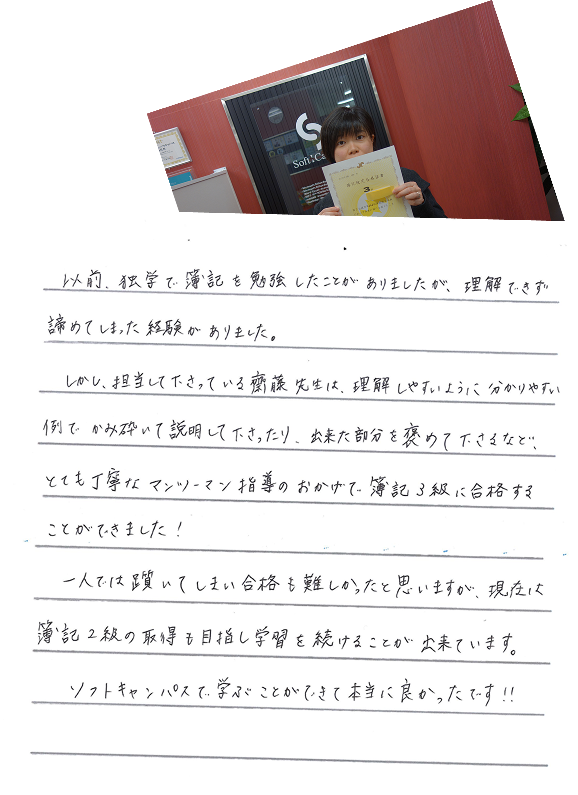 Soft:Ca
3
以前、独学で簿記を勉強したことがありましたが、理解できず
諦めてしまった経験がありました。
しかし、担当して下さっている齋藤先生は、理解しやすいように分かりやすい
例でかみ砕いて説明して下さったり、出来た部分を褒めて下さるなど、
とても丁寧なマンツーマン指導のおかげで簿記3級に合格する
ことができました!
一人では躓いてしまい合格も難しかったと思いますが、現在は
簿記2級の取得も目指し学習を続けることが出来ています。
ソフトキャンパスで学ぶことができて本当に良かったです!!